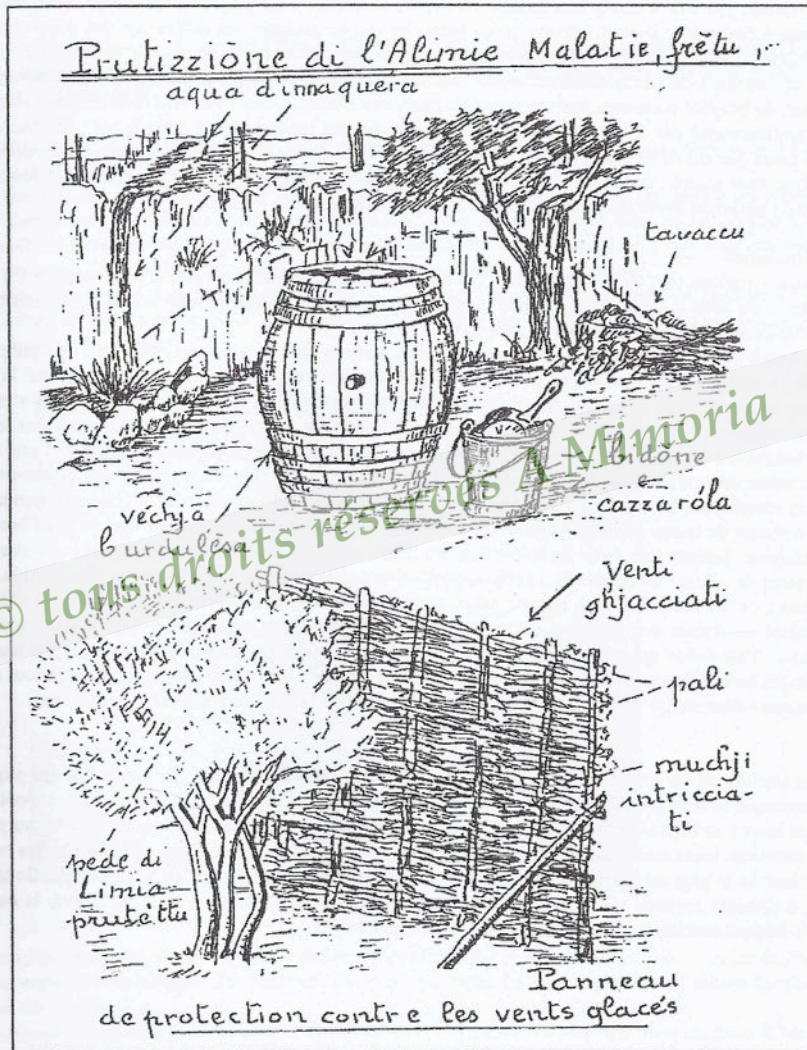 Prutizziòne di l'Alimie Malatie, frètu,
aqua d'innaquéra
tavaccu
bidòne
e
cazzaróla
véchja
burdulésa
© tous droits réservés A Mimoria
Venti
ghjacciati
pali
muchji
intriccia-
ti
péde di
Limia
prutéttu
Panneau
de protection contre les vents glacés